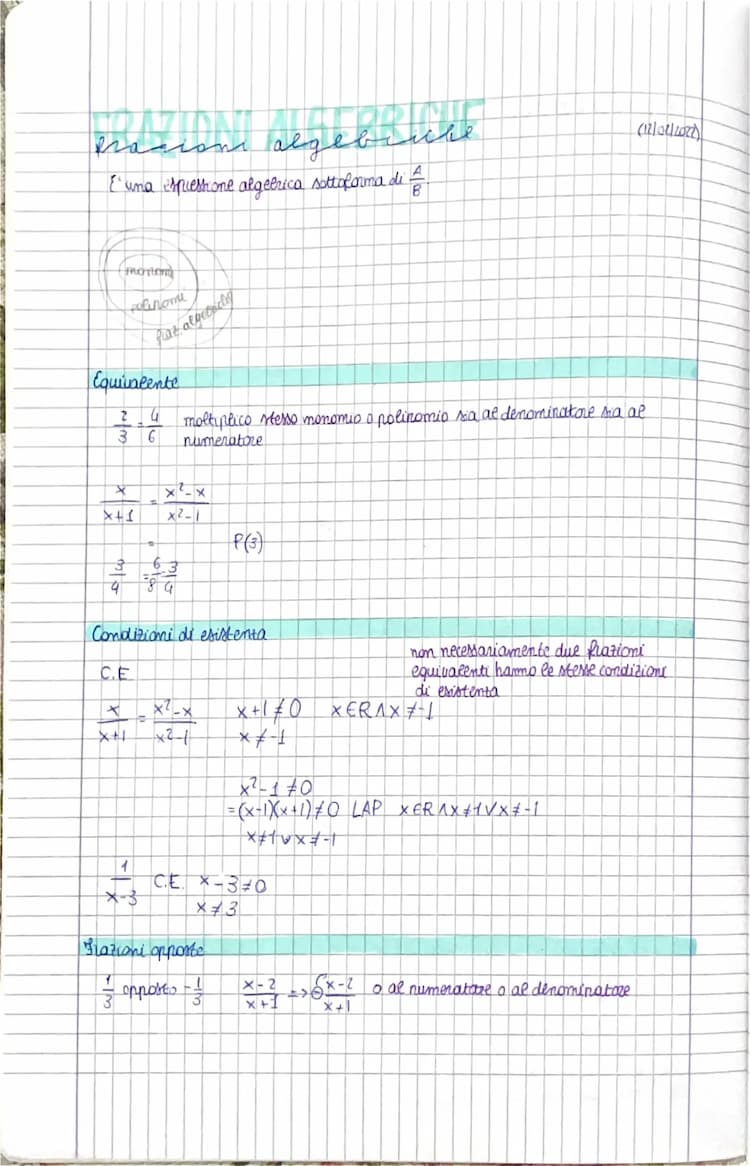 FRAZIONI ALGEBRICHE
frazioni algebriche
E' una espressione algebrica sottoforma di A/B
monomi
polinomi
fraz. algebriche
Equivalente
2/3 = 4/6 moltiplico stesso monomio o polinomio sia al denominatore sia al
numeratore
x/(x+1) = (x²-x)/(x²-1)
= P(3)
3/4 = 6/8 3/4
Condizioni di esistenza
non necessariamente due frazioni
C.E equivalenti hanno le stesse condizioni
di esistenza
x/(x+1) = (x²-x)/(x²-1) x+1≠0 x∈R∧x≠-1
x≠-1
x²-1≠0
=(x-1)(x+1)≠0 LAP x∈R∧x≠1∨x≠-1
x≠1∨x≠-1
1/(x-3) C.E. x-3≠0
x≠3
Frazioni opposte
1/3 opposto -1/3 (x-2)/(x+1) => -(x-2)/(x+1) o al numeratore o al denominatore